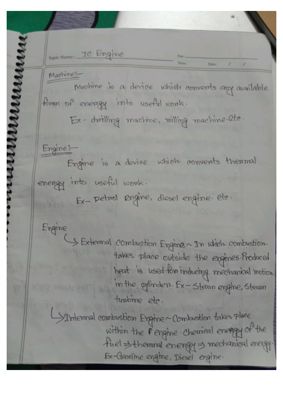 Topic Name:- IC Engine
Date: / /
Machine:-
Machine is a device which converts any available
form of energy into useful work.
Ex- drilling machine, milling machine etc
Engine:-
Engine is a device which converts thermal
energy into useful work.
Ex- Petrol Engine, diesel engine etc.
Engine
External Combustion Engine ~ In which combustion
takes place outside the engines. Produced
heat is used for inducing mechanical motion
in the cylinders. Ex- Steam engine, Steam
turbine etc.
Internal combustion Engine ~ Combustion takes place
within the engine chemical energy of the
fuel → thermal energy → mechanical energy.
Ex- Gasoline engine, Diesel engine.